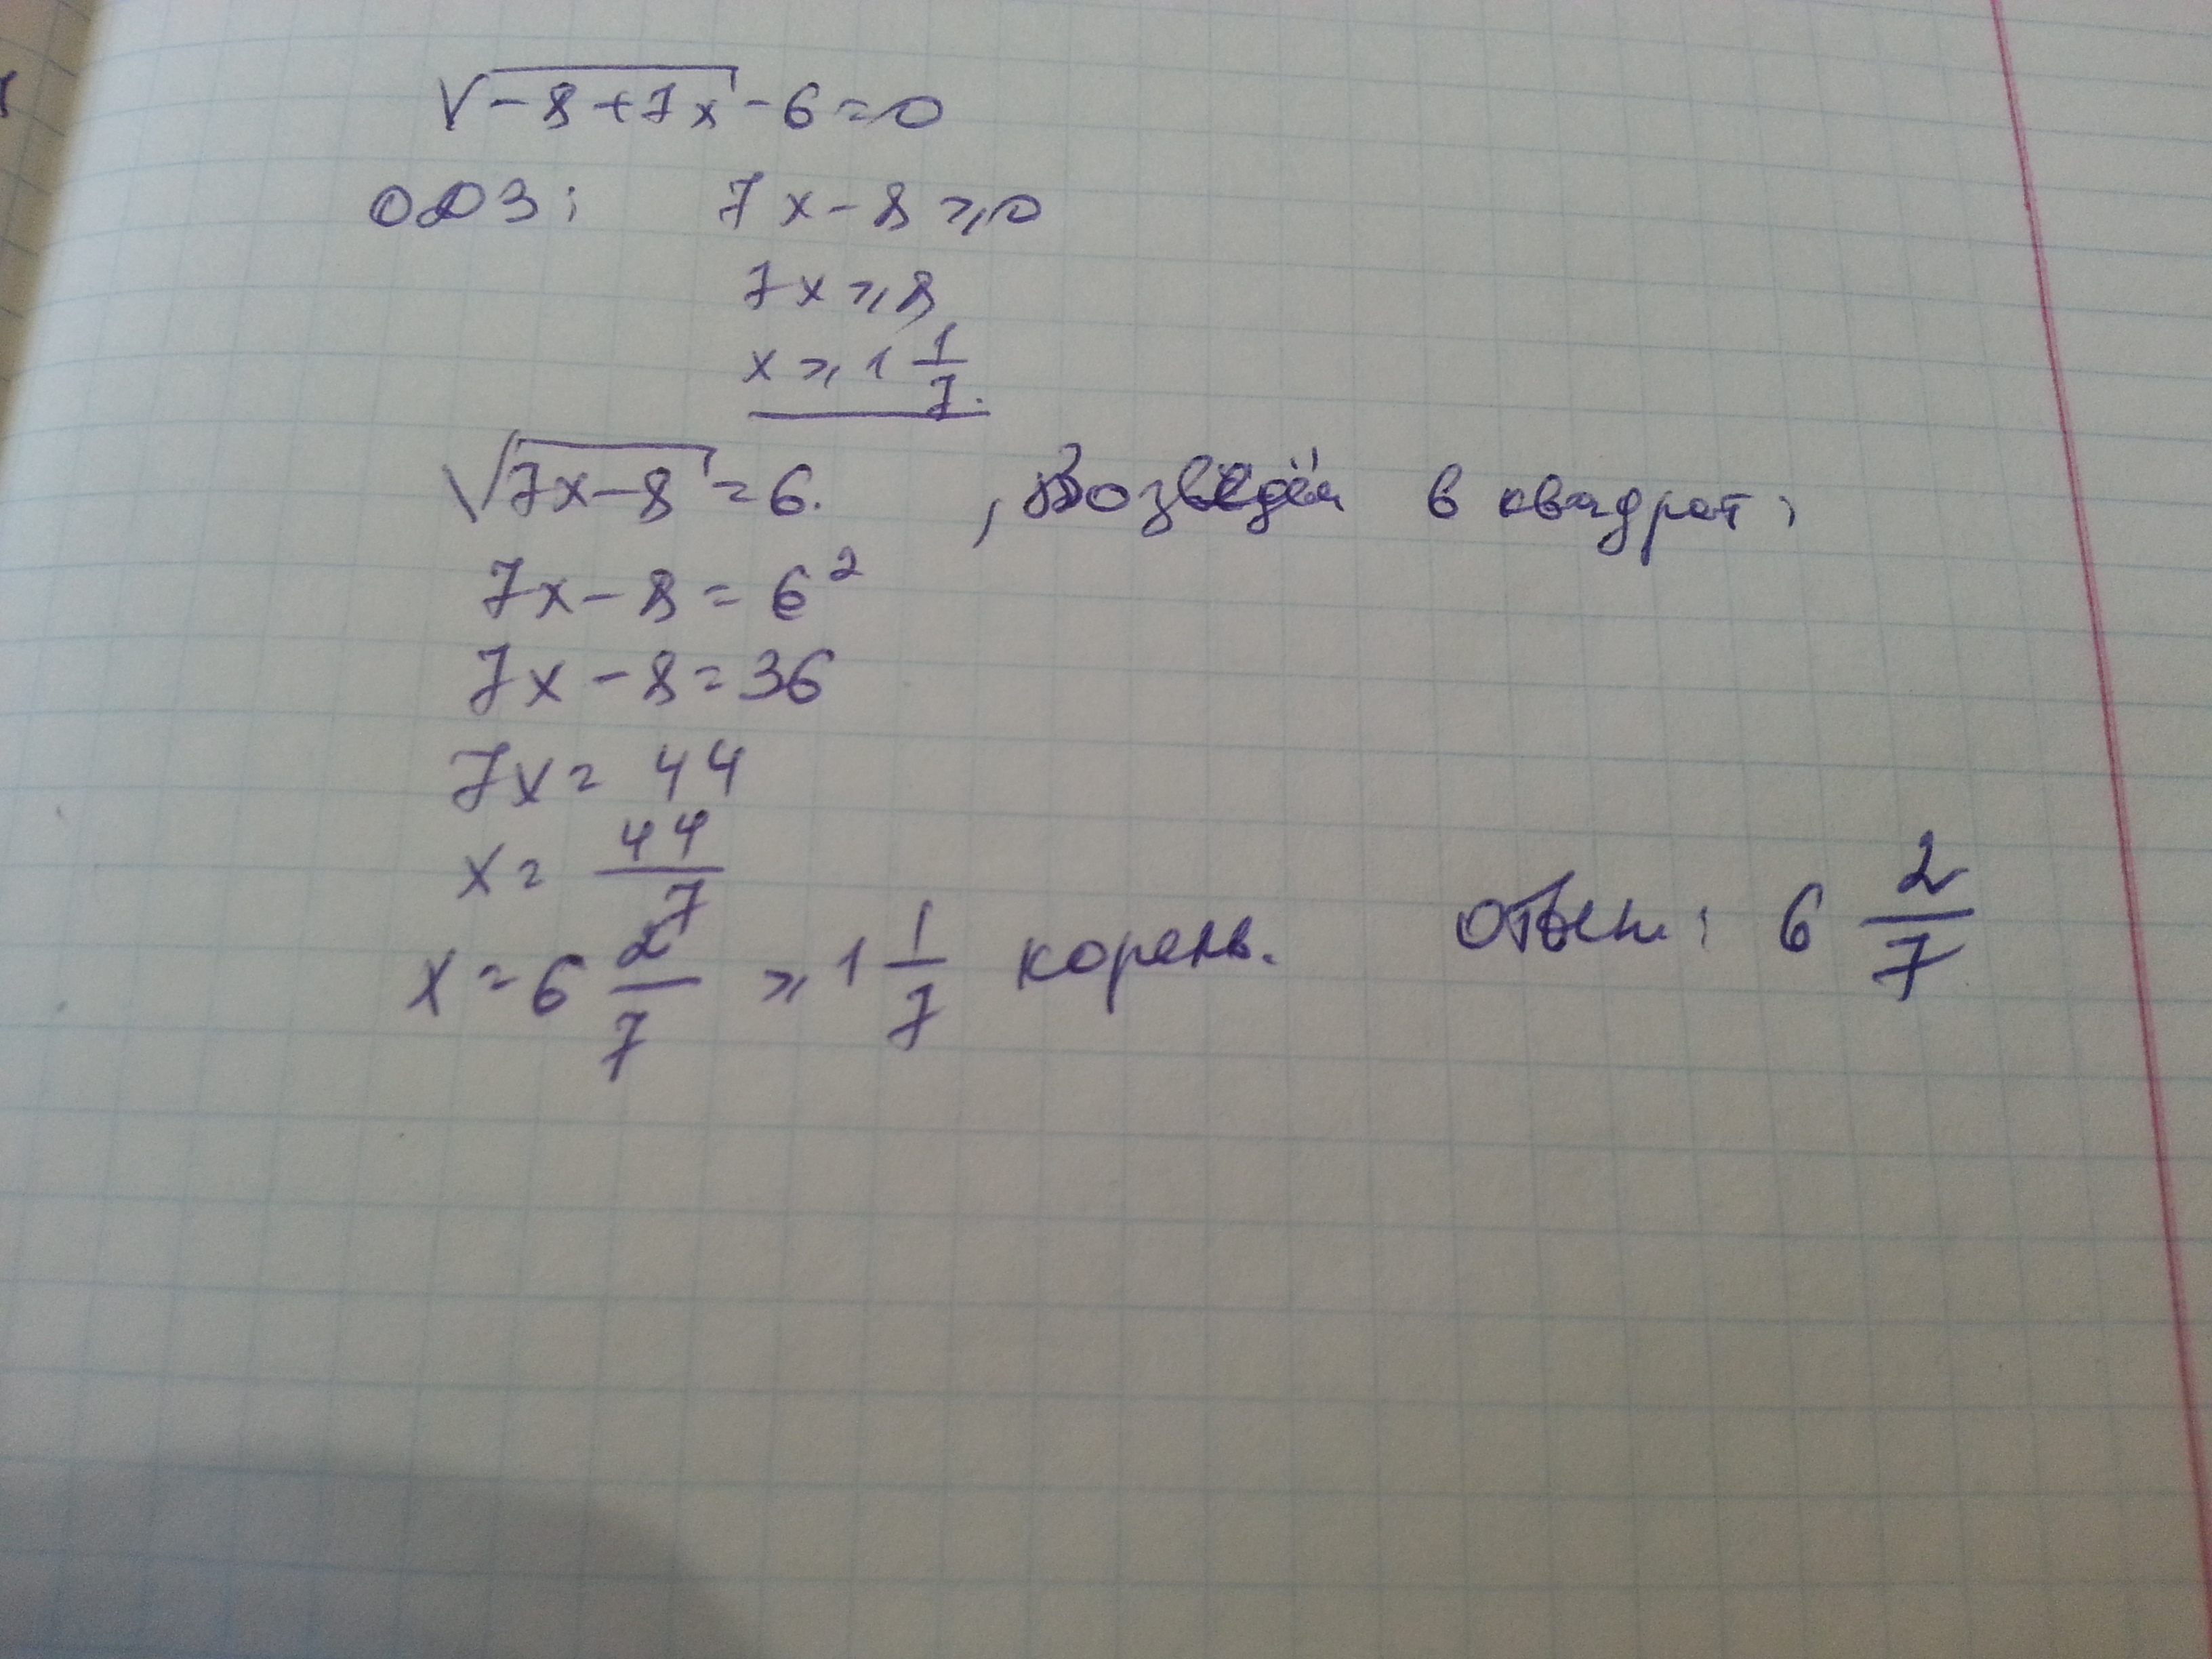 √-8+7x - 6 = 0
ОДЗ: 7x - 8 ⩾ 0
7x ⩾ 8
x ⩾ 1 1/7.
√7x-8 = 6. , Возведём в квадрат:
7x - 8 = 6²
7x - 8 = 36
7x = 44
x = 44/7
x = 6 2/7 ⩾ 1 1/7 корень. Ответ: 6 2/7